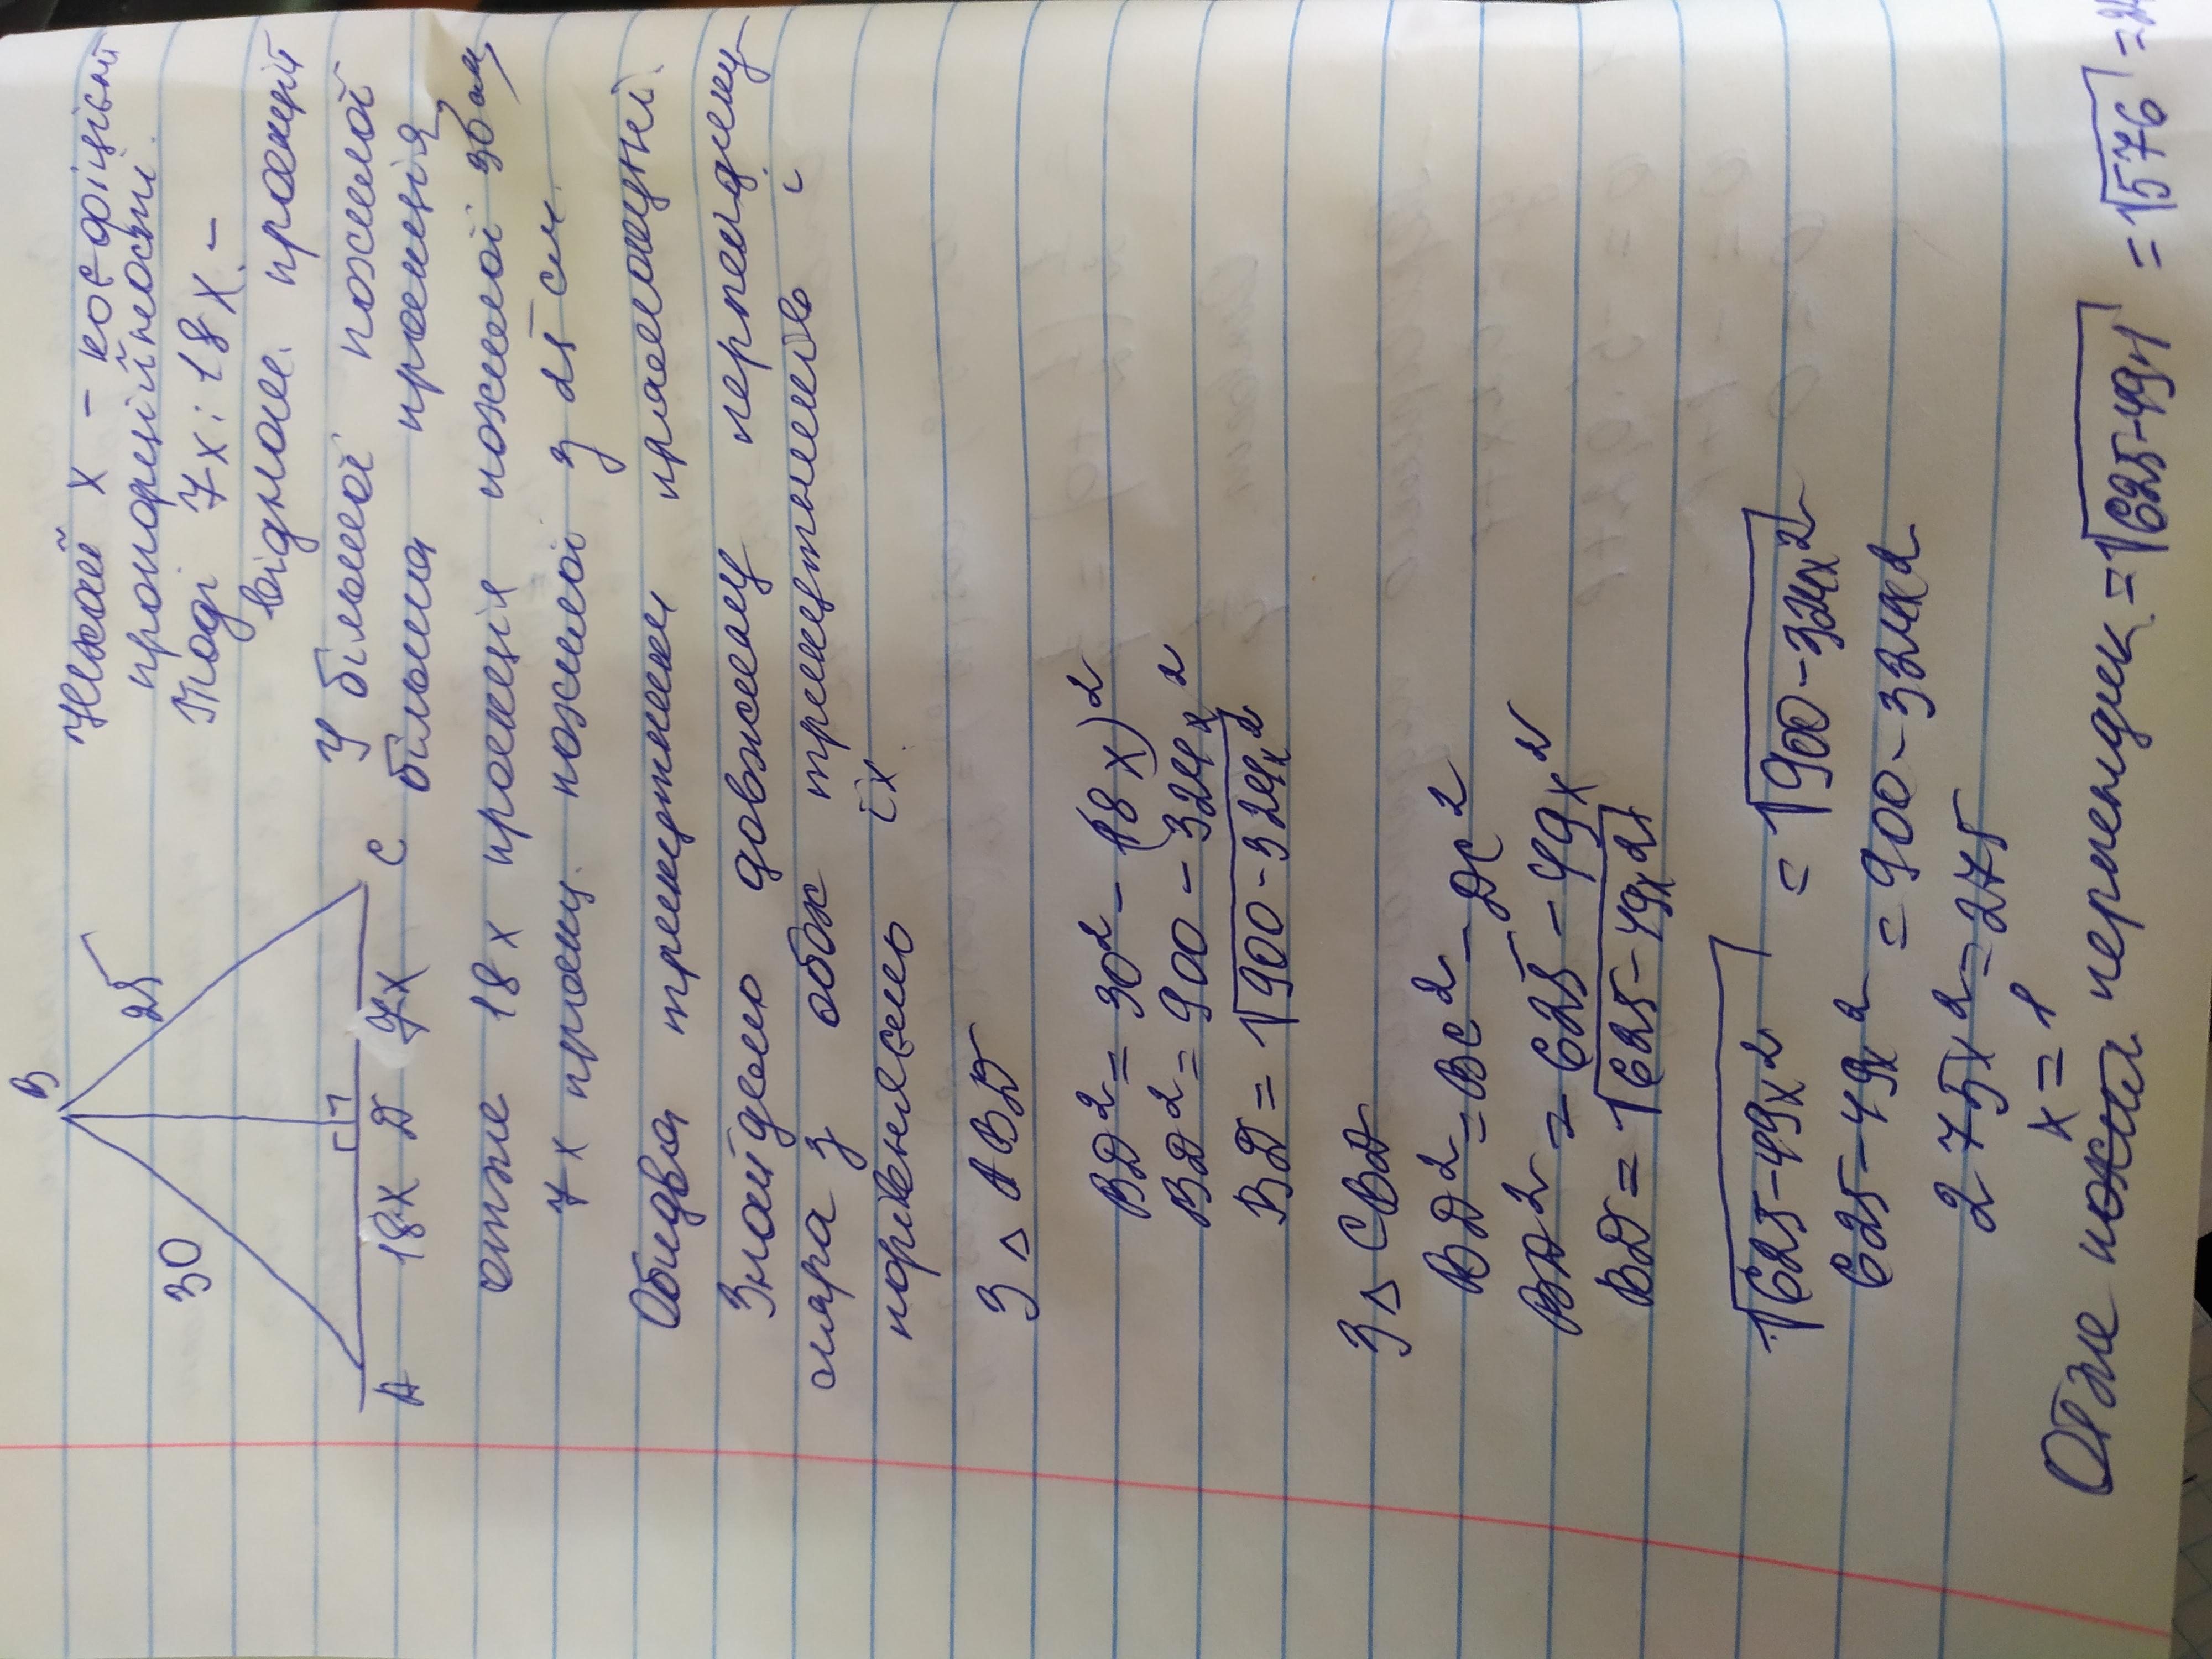 B
30
25
A 18x D 7x C
Нехай x - коефіцієнт
пропорційності.
Тоді 7x : 18x -
віднош. проекцій
У більшої похилої
більша проекція,
отже 18x проекція похилої 30 см,
7x проекц. похилої з 25 см.
Обидва трикутники прямокутні.
Знайдемо довжину перпендику
ляра з обох трикутників і
порівняємо їх.
З △ ABD
BD² = 30² - (18x)²
BD² = 900 - 324x²
BD = √900 - 324x²
З △ CBD
BD² = BC² - DC²
BD² = 625 - 49x²
BD = √625 - 49x²
√625 - 49x² = √900 - 324x²
625 - 49x² = 900 - 324x²
275x² = 275
x = 1
Отже перпендик = √625-49 = √576 = 24